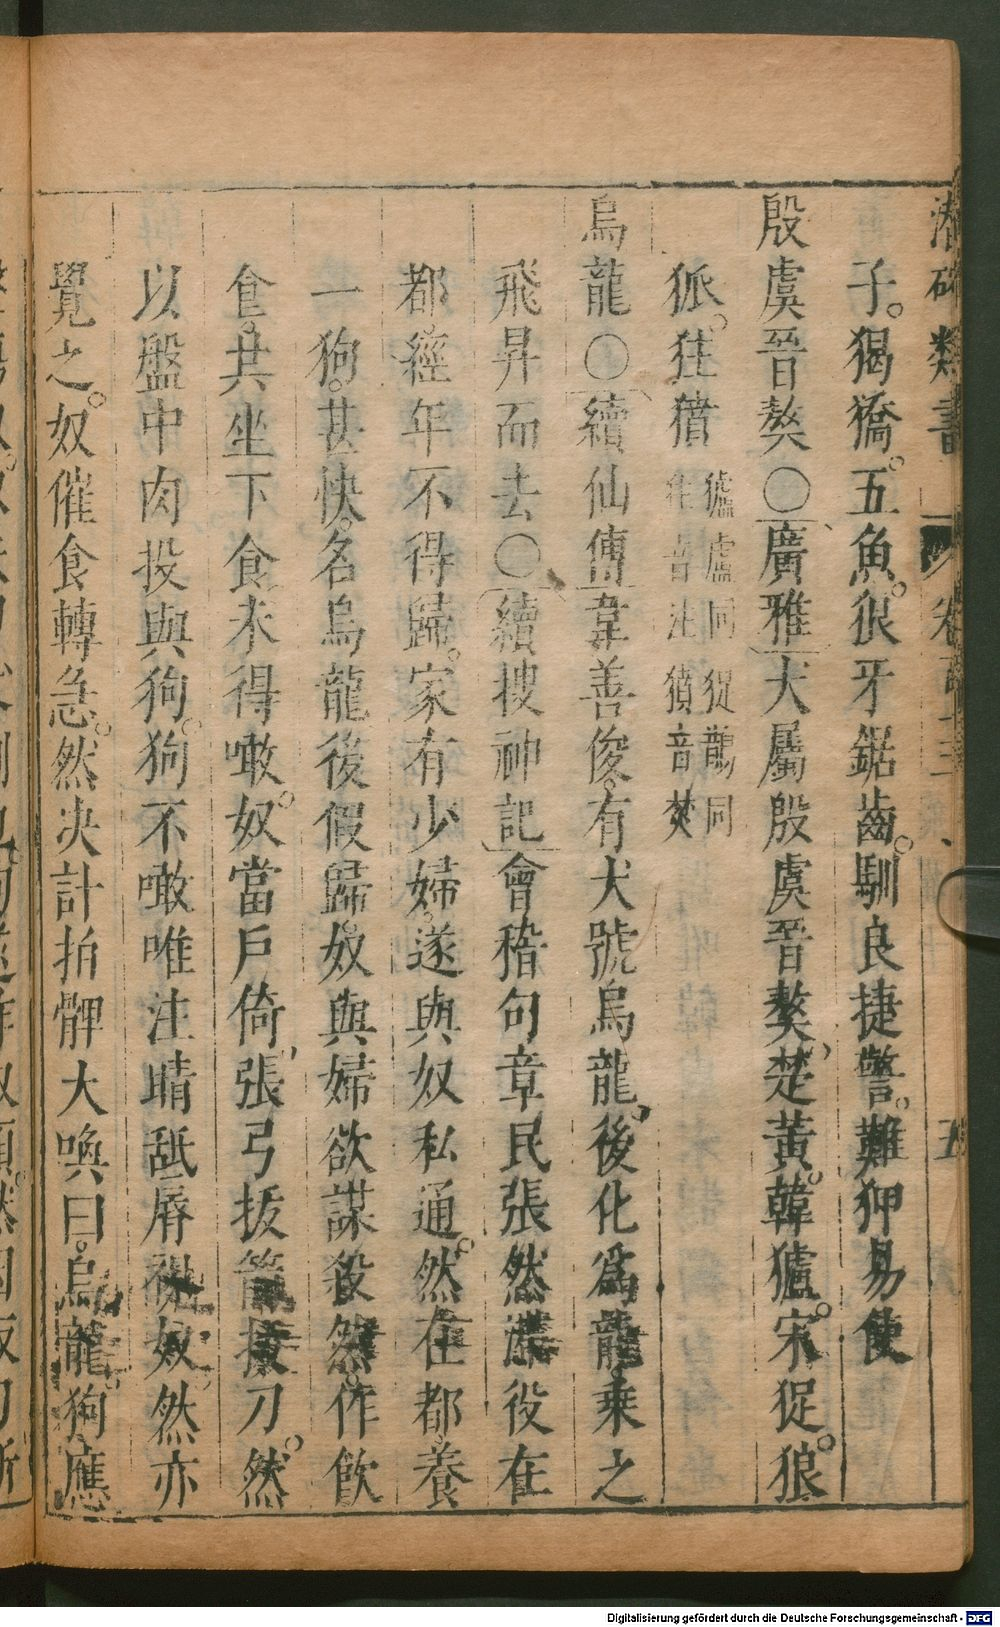 潛確類書 卷 十三 五
子。猲獢。五魚。狠牙鋸齒。馴良捷警。難狎易使
殷虞晉獒〇廣雅犬屬殷虞晉獒。楚黃。韓獹。宋猣。狼
狐。狂獚 獹盧同 猣鵲同
狂音注 獚音
烏龍〇續仙傳韋善俊。有犬號烏龍。後化爲龍。乘之
飛昇而去〇續搜神記會稽句章民張然滯役在
都。經年不得歸。家有少婦。遂與奴私通。然在都。養
一狗。甚快。名烏龍後假歸。奴與婦欲謀殺然。作飮
食。共坐下食未得噉。奴當戶倚。張弓拔箭拔刀。然
以盤中肉投與狗。狗不噉唯注睛舐脣視奴然亦
覺之。奴催食轉急。然決計拍髀大喚曰。烏龍。狗應
Digitalisierung gefördert durch die Deutsche Forschungsgemeinschaft - DFG